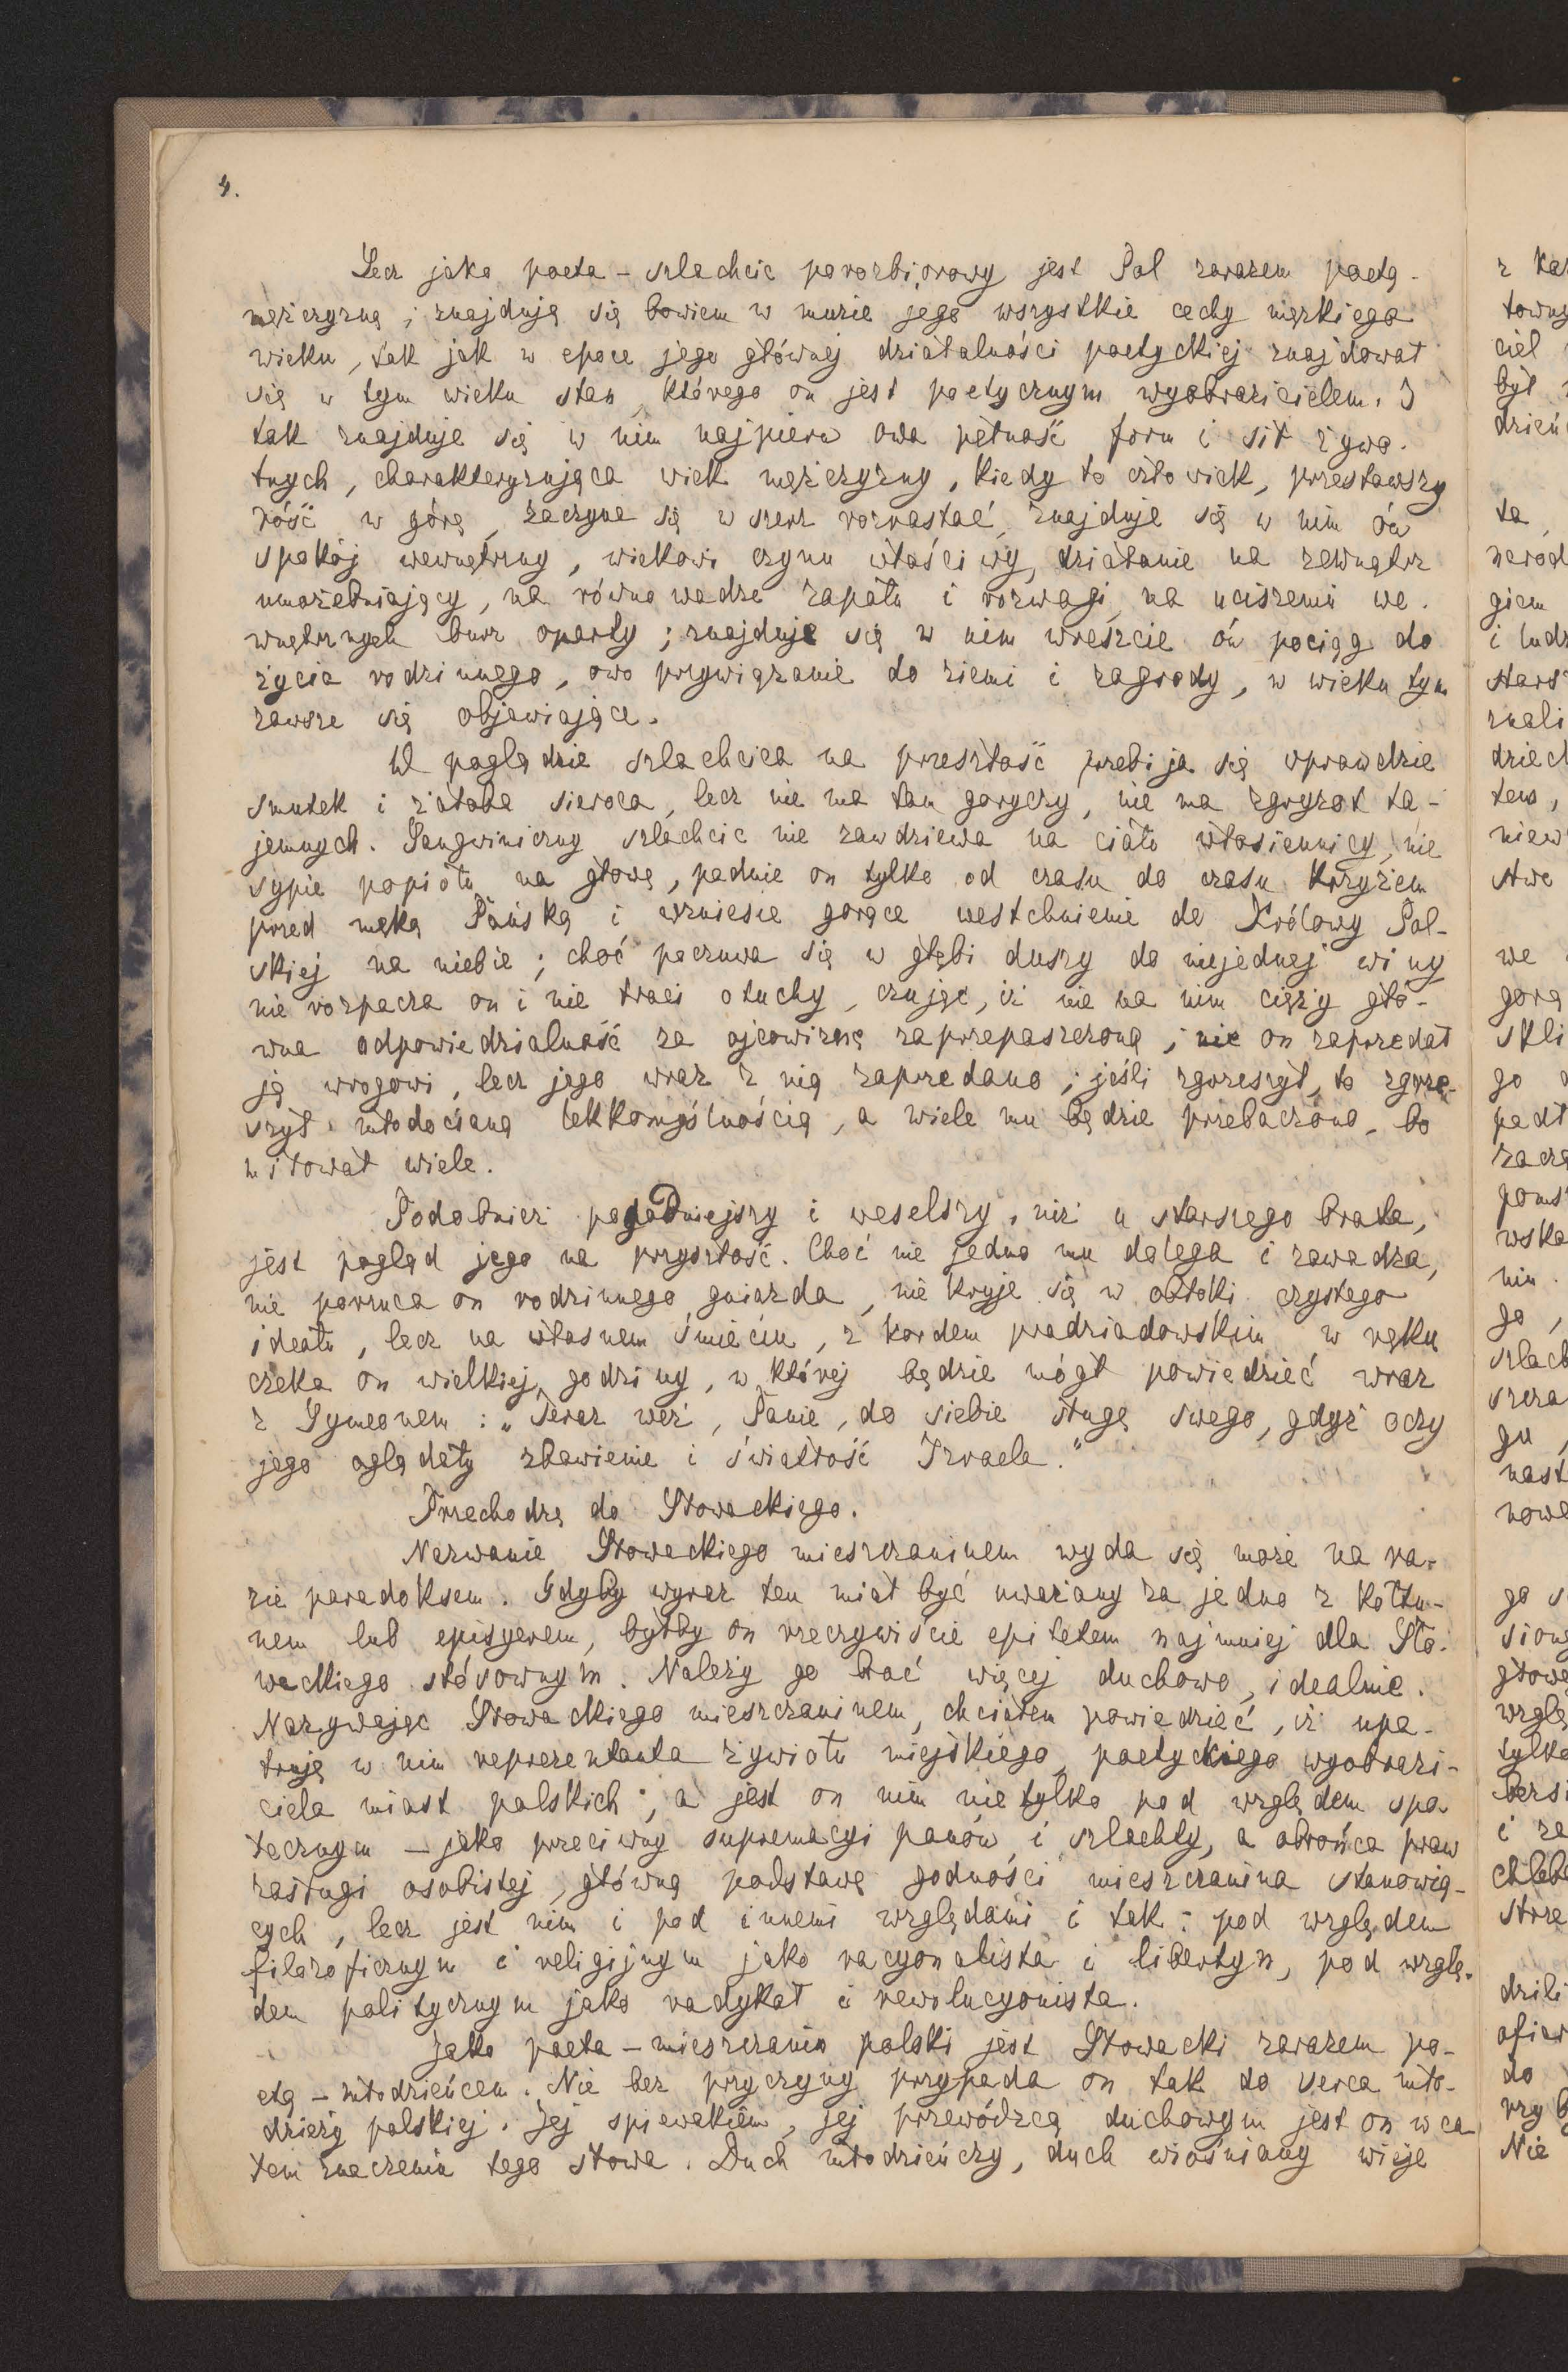 4.
Lecz jako poeta - szlachcic porozbiorowy jest Pol zarazem poetą -
mężczyzną; znajdują się bowiem w muzie jego wszystkie cechy męzkiego
wieku, tak jak w epoce jego głównej działalności poetyckiej znajdował
się w tym wieku stan, którego on jest poetycznym wyobrazicielem. I
tak znajduje się w nim najpierw owa pełność form i sił żywo-
tnych, charakteryzująca wiek mężczyzny, kiedy to człowiek, przestawszy
róść w górę, zaczyna się w szerz rozrastać, znajduje się w nim ów
spokój wewnętrzny, wiekowi czynu właściwy, działanie na zewnątrz
umożebniający, na równowadze zapału i rozwagi, na uciszeniu we-
wnętrznych burz oparty; znajduje się w nim wreszcie ów pociąg do
życia rodzinnego, owo przywiązanie do ziemi i zagrody, w wieku tym
zawsze się objawiające.
W poglądzie szlachcica na przeszłość przebija się wprawdzie
smutek i żałoba sieroca, lecz nie ma tam goryczy, nie ma zgryzot ta-
jemnych. Sangwiniczny szlachcic nie zawdziewa na ciało włosiennicy, nie
sypie popiołu na głowę, padnie on tylko od czasu do czasu krzyżem
przed męką Pańską i wzniesie gorące westchnienie do Królowy Pol-
skiej na niebie; choć poczuwa się w głębi duszy do niejednej winy
nie rozpacza on i nie traci otuchy, czując, iż nie na nim ciąży głó-
wna odpowiedzialność za ojcowiznę zaprzepaszczoną; nie on zaprzedał
ją wrogowi, lecz jego wraz z nią zaprzedano; jeśli zgrzeszył, to zgrze-
szył młodocianą lekkomyślnością, a wiele mu będzie przebaczono, bo
miłował wiele.
Podobnież pogodniejszy i weselszy, niż u starszego brata,
jest pogląd jego na przyszłość. Choć nie jedno mu dolega i zawadza,
nie porzuca on rodzinnego gniazda, nie kryje się w obłoki czystego
ideału, lecz na własnem śmieciu, z kordem pradziadowskim w ręku
czeka on wielkiej godziny, w której będzie mógł powiedzieć wraz
z Symeonem: „Teraz weź, Panie, do siebie sługę swego, gdyż oczy
jego oglądały zbawienie i światłość Izraela."
Przechodzę do Słowackiego.
Nazwanie Słowackiego mieszczaninem wyda się może na ra-
zie paradoksem. Gdyby wyraz ten miał być uważany za jedno z kołtu-
nem lub episyerem, byłby on rzeczywiście epitetem najmniej dla Sło-
wackiego stósownym. Należy go brać więcej duchowo, idealnie.
Nazywając Słowackiego mieszczaninem, chciałem powiedzieć, iż upa-
truję w nim reprezentanta żywiołu miejskiego, poetyckiego wyobrazi-
ciela miast polskich; a jest on nim nie tylko pod względem spo
łecznym - jako przeciwny supremacyi panów i szlachty, a obrońca praw
zasługi osobistej, główną podstawę godności mieszczanina stanowią-
cych, lecz jest nim i pod innemi względami i tak: pod względem
filozoficznym i religijnym jako racyonalista i libertyn, pod wzglę-
dem politycznym jako radykał i rewolucyonista.
Jako poeta - mieszczanin polski jest Słowacki zarazem po-
etą - młodzieńcem. Nie bez przyczyny przypada on tak do serca mło-
dzieży polskiej. Jej śpiewakiem, jej przewódzcą duchowym jest on w ca
łem znaczeniu tego słowa. Duch młodzieńczy, duch wiośniany wieje